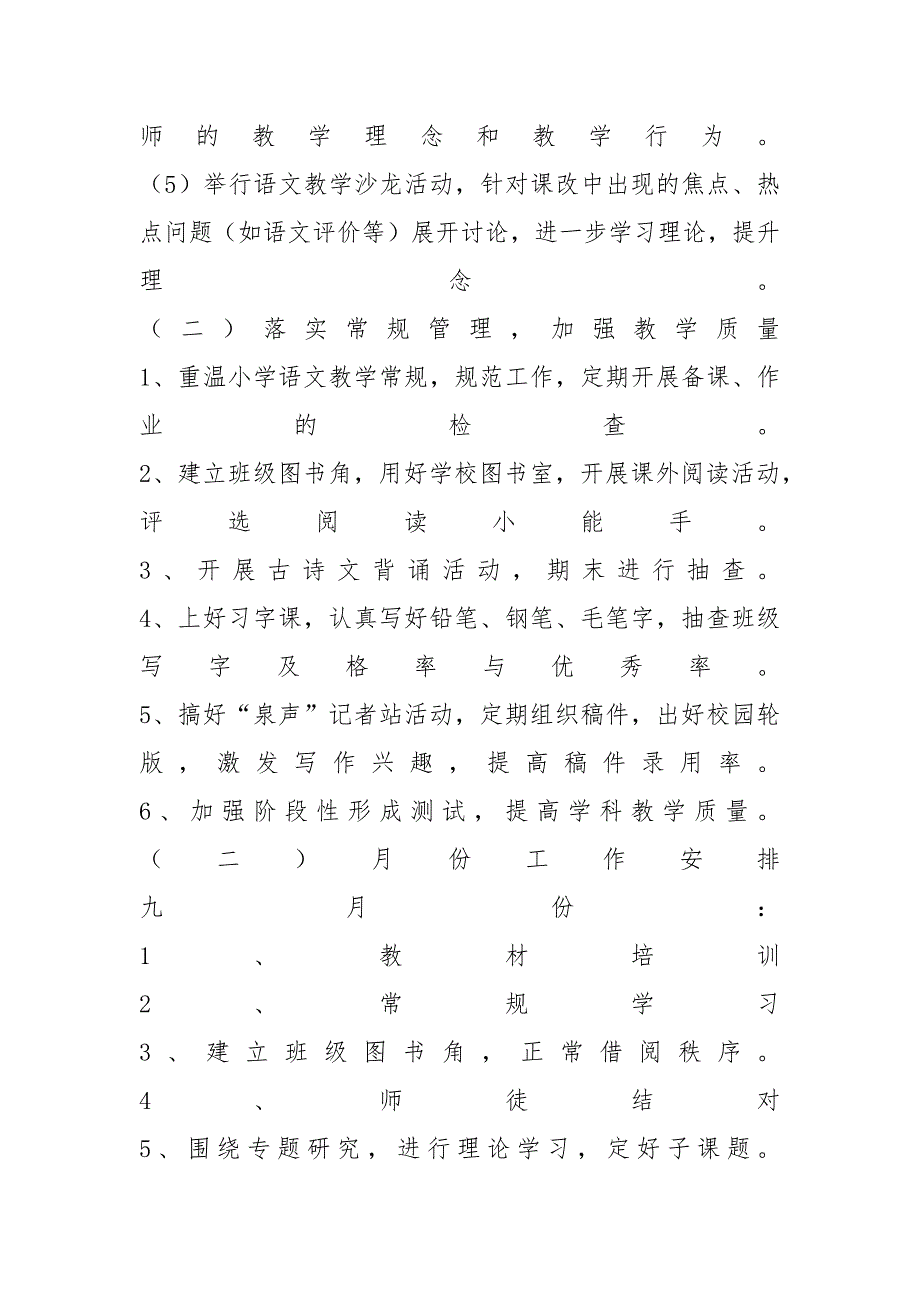 师的教学理念和教学行为。
（5）举行语文教学沙龙活动，针对课改中出现的焦点、热
点问题（如语文评价等）展开讨论，进一步学习理论，提升
理念。
（二）落实常规管理，加强教学质量
1、重温小学语文教学常规，规范工作，定期开展备课、作
业的检查。
2、建立班级图书角，用好学校图书室，开展课外阅读活动，
评选阅读小能手。
3、开展古诗文背诵活动，期末进行抽查。
4、上好习字课，认真写好铅笔、钢笔、毛笔字，抽查班级
写字及格率与优秀率。
5、搞好“泉声”记者站活动，定期组织稿件，出好校园轮
版，激发写作兴趣，提高稿件录用率。
6、加强阶段性形成测试，提高学科教学质量。
（二）月份工作安排
九月份：
1、教材培训
2、常规学习
3、建立班级图书角，正常借阅秩序。
4、师徒结对
5、围绕专题研究，进行理论学习，定好子课题。